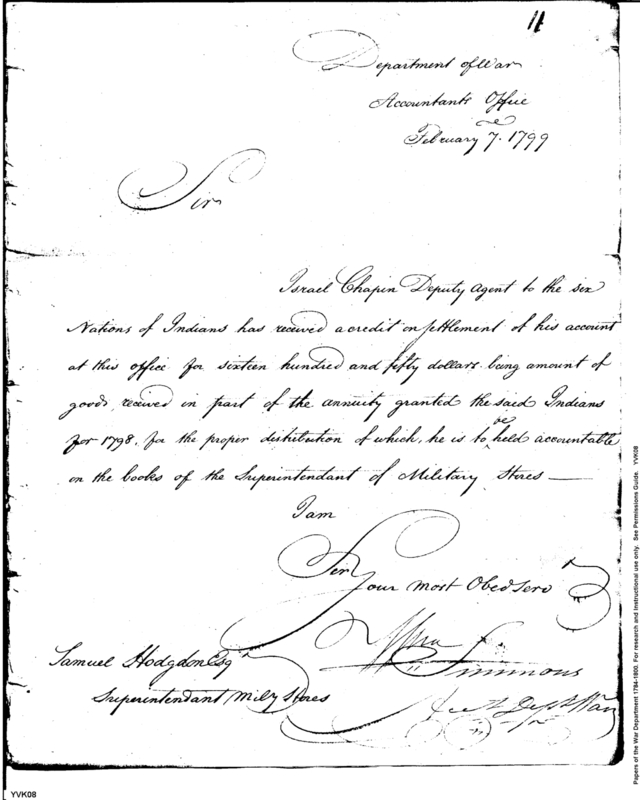 11
Department of War
Accountants Office
February 7. 1799
Sir
Israel Chapin Deputy Agent to the six
Nations of Indians has received a credit on settlement of his account
at this office for sixteen hundred and fifty dollars being amount of
goods received in part of the annuity granted the said Indians
for 1798, for the proper distribution of which, he is to be held accountable
on the books of the Superintendant of Military Stores —
I am
Sir
Your most Obed Serv
Wm Simmons
Acct Dept War
Samuel Hodgdon Esqr
Superintendant Mily Stores
YVK08
Papers of the War Department 1784-1800. For research and instructional use only. See Permissions Guide. YVK08